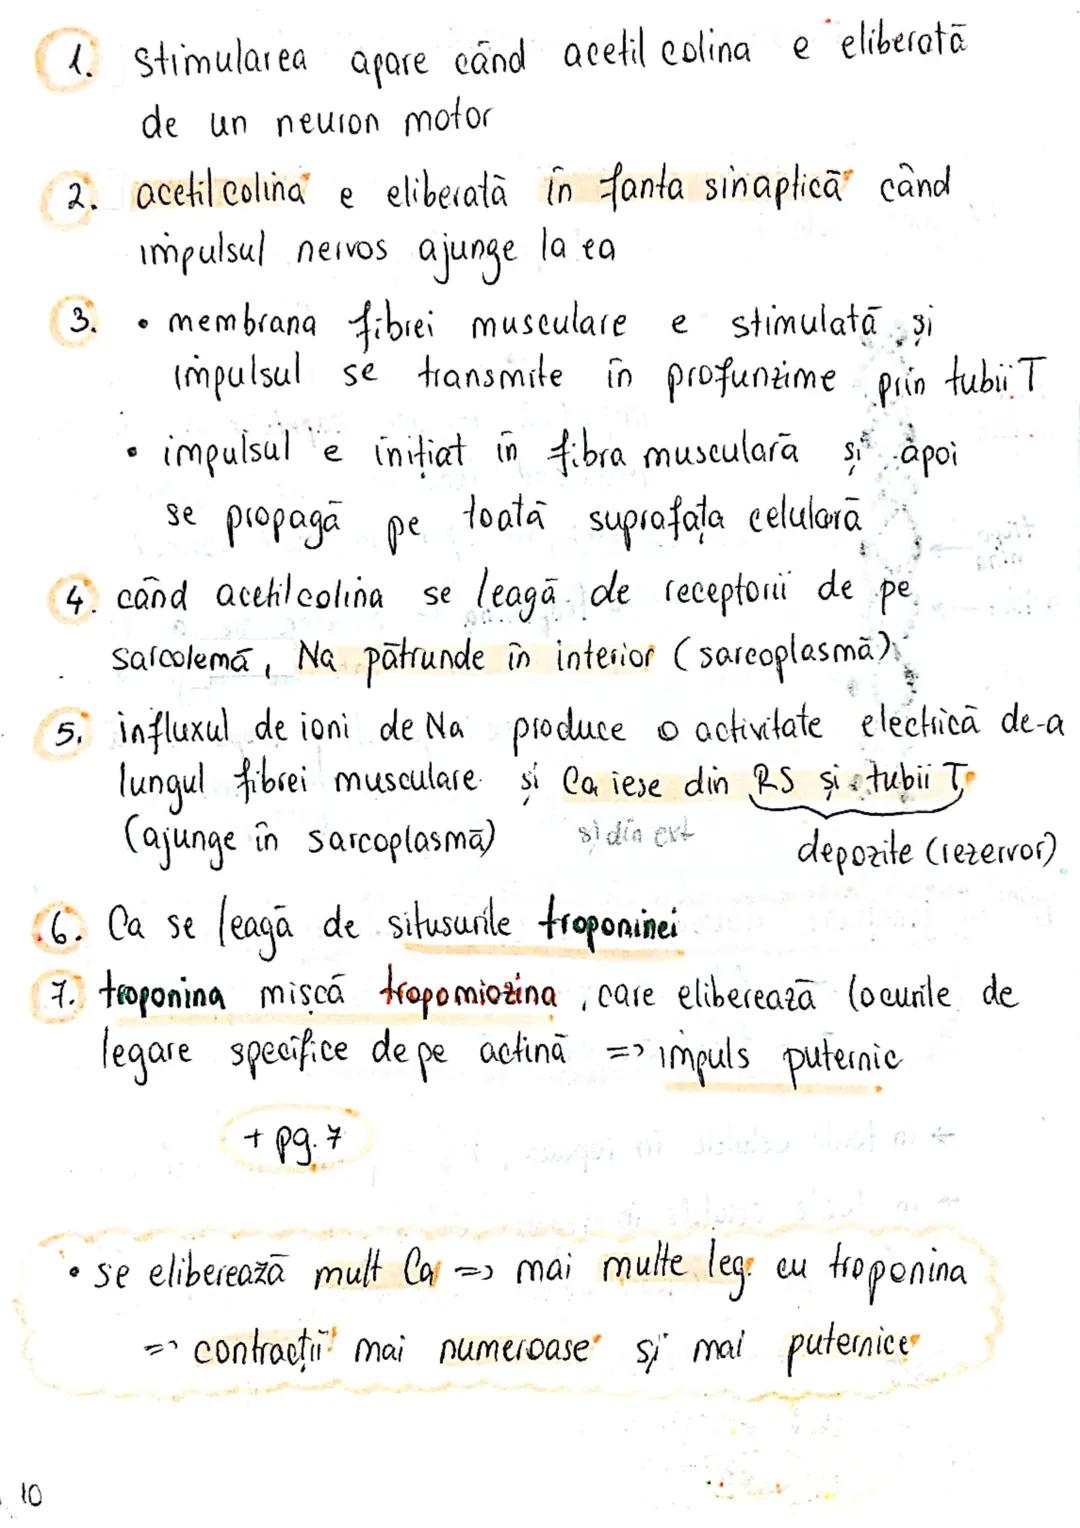 1. Stimularea apare când acetil colina e eliberată
de un neuron motor
2. acetilcolina e eliberată în fanta sinaptică când
impulsul nervos ajunge la ea
3. • membrana fibrei musculare e stimulată și
impulsul se transmite în profunzime prin tubii T
• impulsul e inițiat în fibra musculară și apoi
se propagă pe toată suprafața celulară
4. când acetilcolina se leagă de receptorii de pe
sarcolemă, Na pătrunde în interior (sarcoplasmă)
5. influxul de ioni de Na produce o activitate electrică de-a
lungul fibrei musculare și Ca iese din RS și tubii T
(ajunge în sarcoplasmă) și din ext
depozite (rezervor)
6. Ca se leagă de situsurile troponinei
7. troponina mișcă tropomiozina, care eliberează locurile de
legare specifice de pe actină => impuls puternic
+ pg. 7
• se eliberează mult Ca => mai multe leg. cu troponina
=> contracții mai numeroase și mai puternice
10